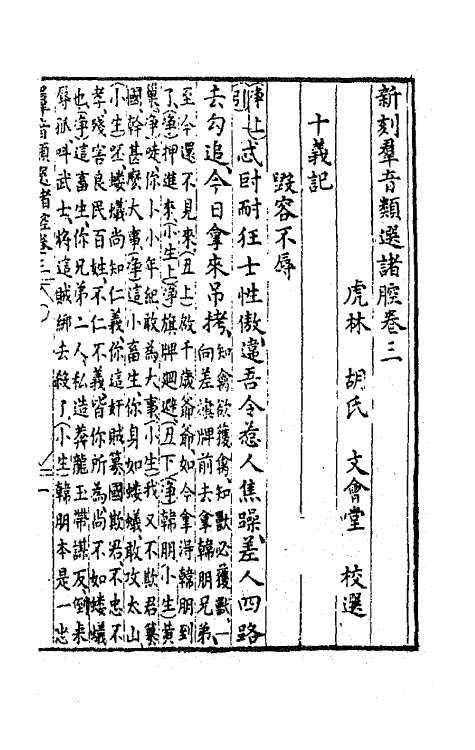 新刻羣音類選諸腔卷三
虎林 胡氏 文會堂 校選
十義記
毀容不辱
(淨上)
引忒
耐狂士性傲違吾令惹人焦躁差人四路
去勾追今日拿來吊拷
知禽欲獲禽知獸必獲獸一
向差旗牌前去拿韓朋兄弟
至今還不見來(丑上)啟千歲爺爺如今拿得韓朋到
了(淨)押進來(小生上)(淨)旗牌迴避(丑下)(淨)韓朋(小生)黃
巢(淨)唗你小小年紀敢為大事(小生)我又不欺君篡
國幹甚麽大事(淨)這小畜生你身如螻蟻敢攻太山
(小生)呸螻蟻尚知仁義你這奸賊篡國欺君不忠不
孝殘害良民百姓不仁不義皆你所為尚不如螻蟻
也(淨)這畜生你兄弟二人私造莽龍玉帶謀反倒來
辱孤叫武士將這賊綁去殺了(小生)韓朋本是一忠
羣音類選諸腔卷三
一